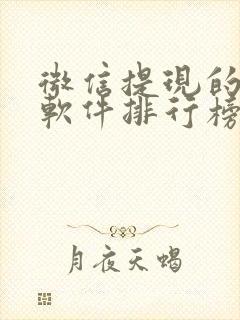 微信提現的
軟件排行榜
月夜天蝎